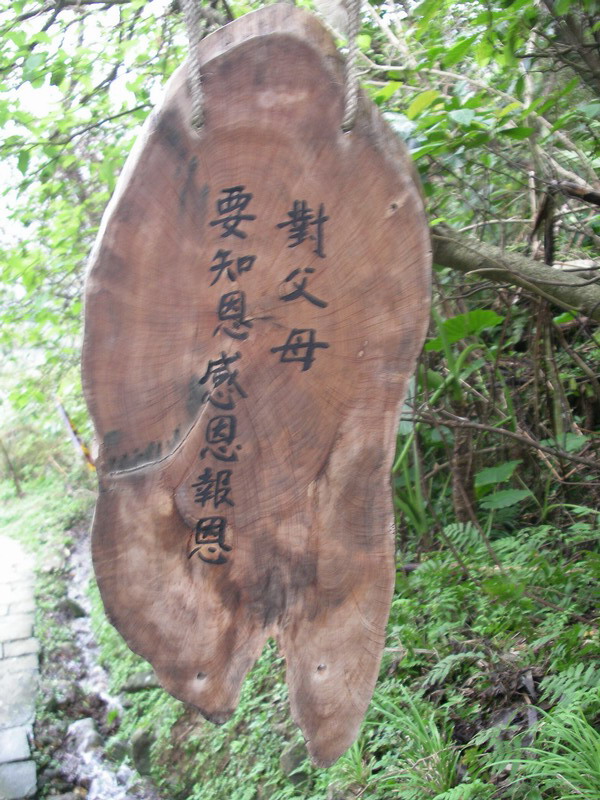 對父母
要知恩感恩報恩